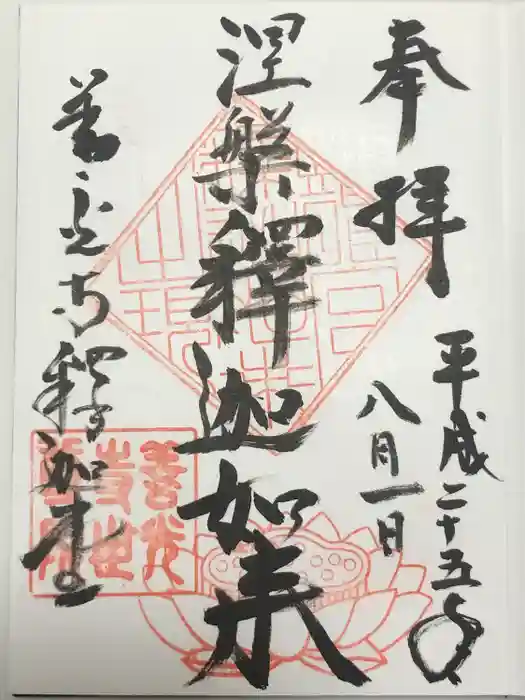 奉拝
平成二十五年
八月一日
涅槃釋迦如来
善光寺釋迦堂